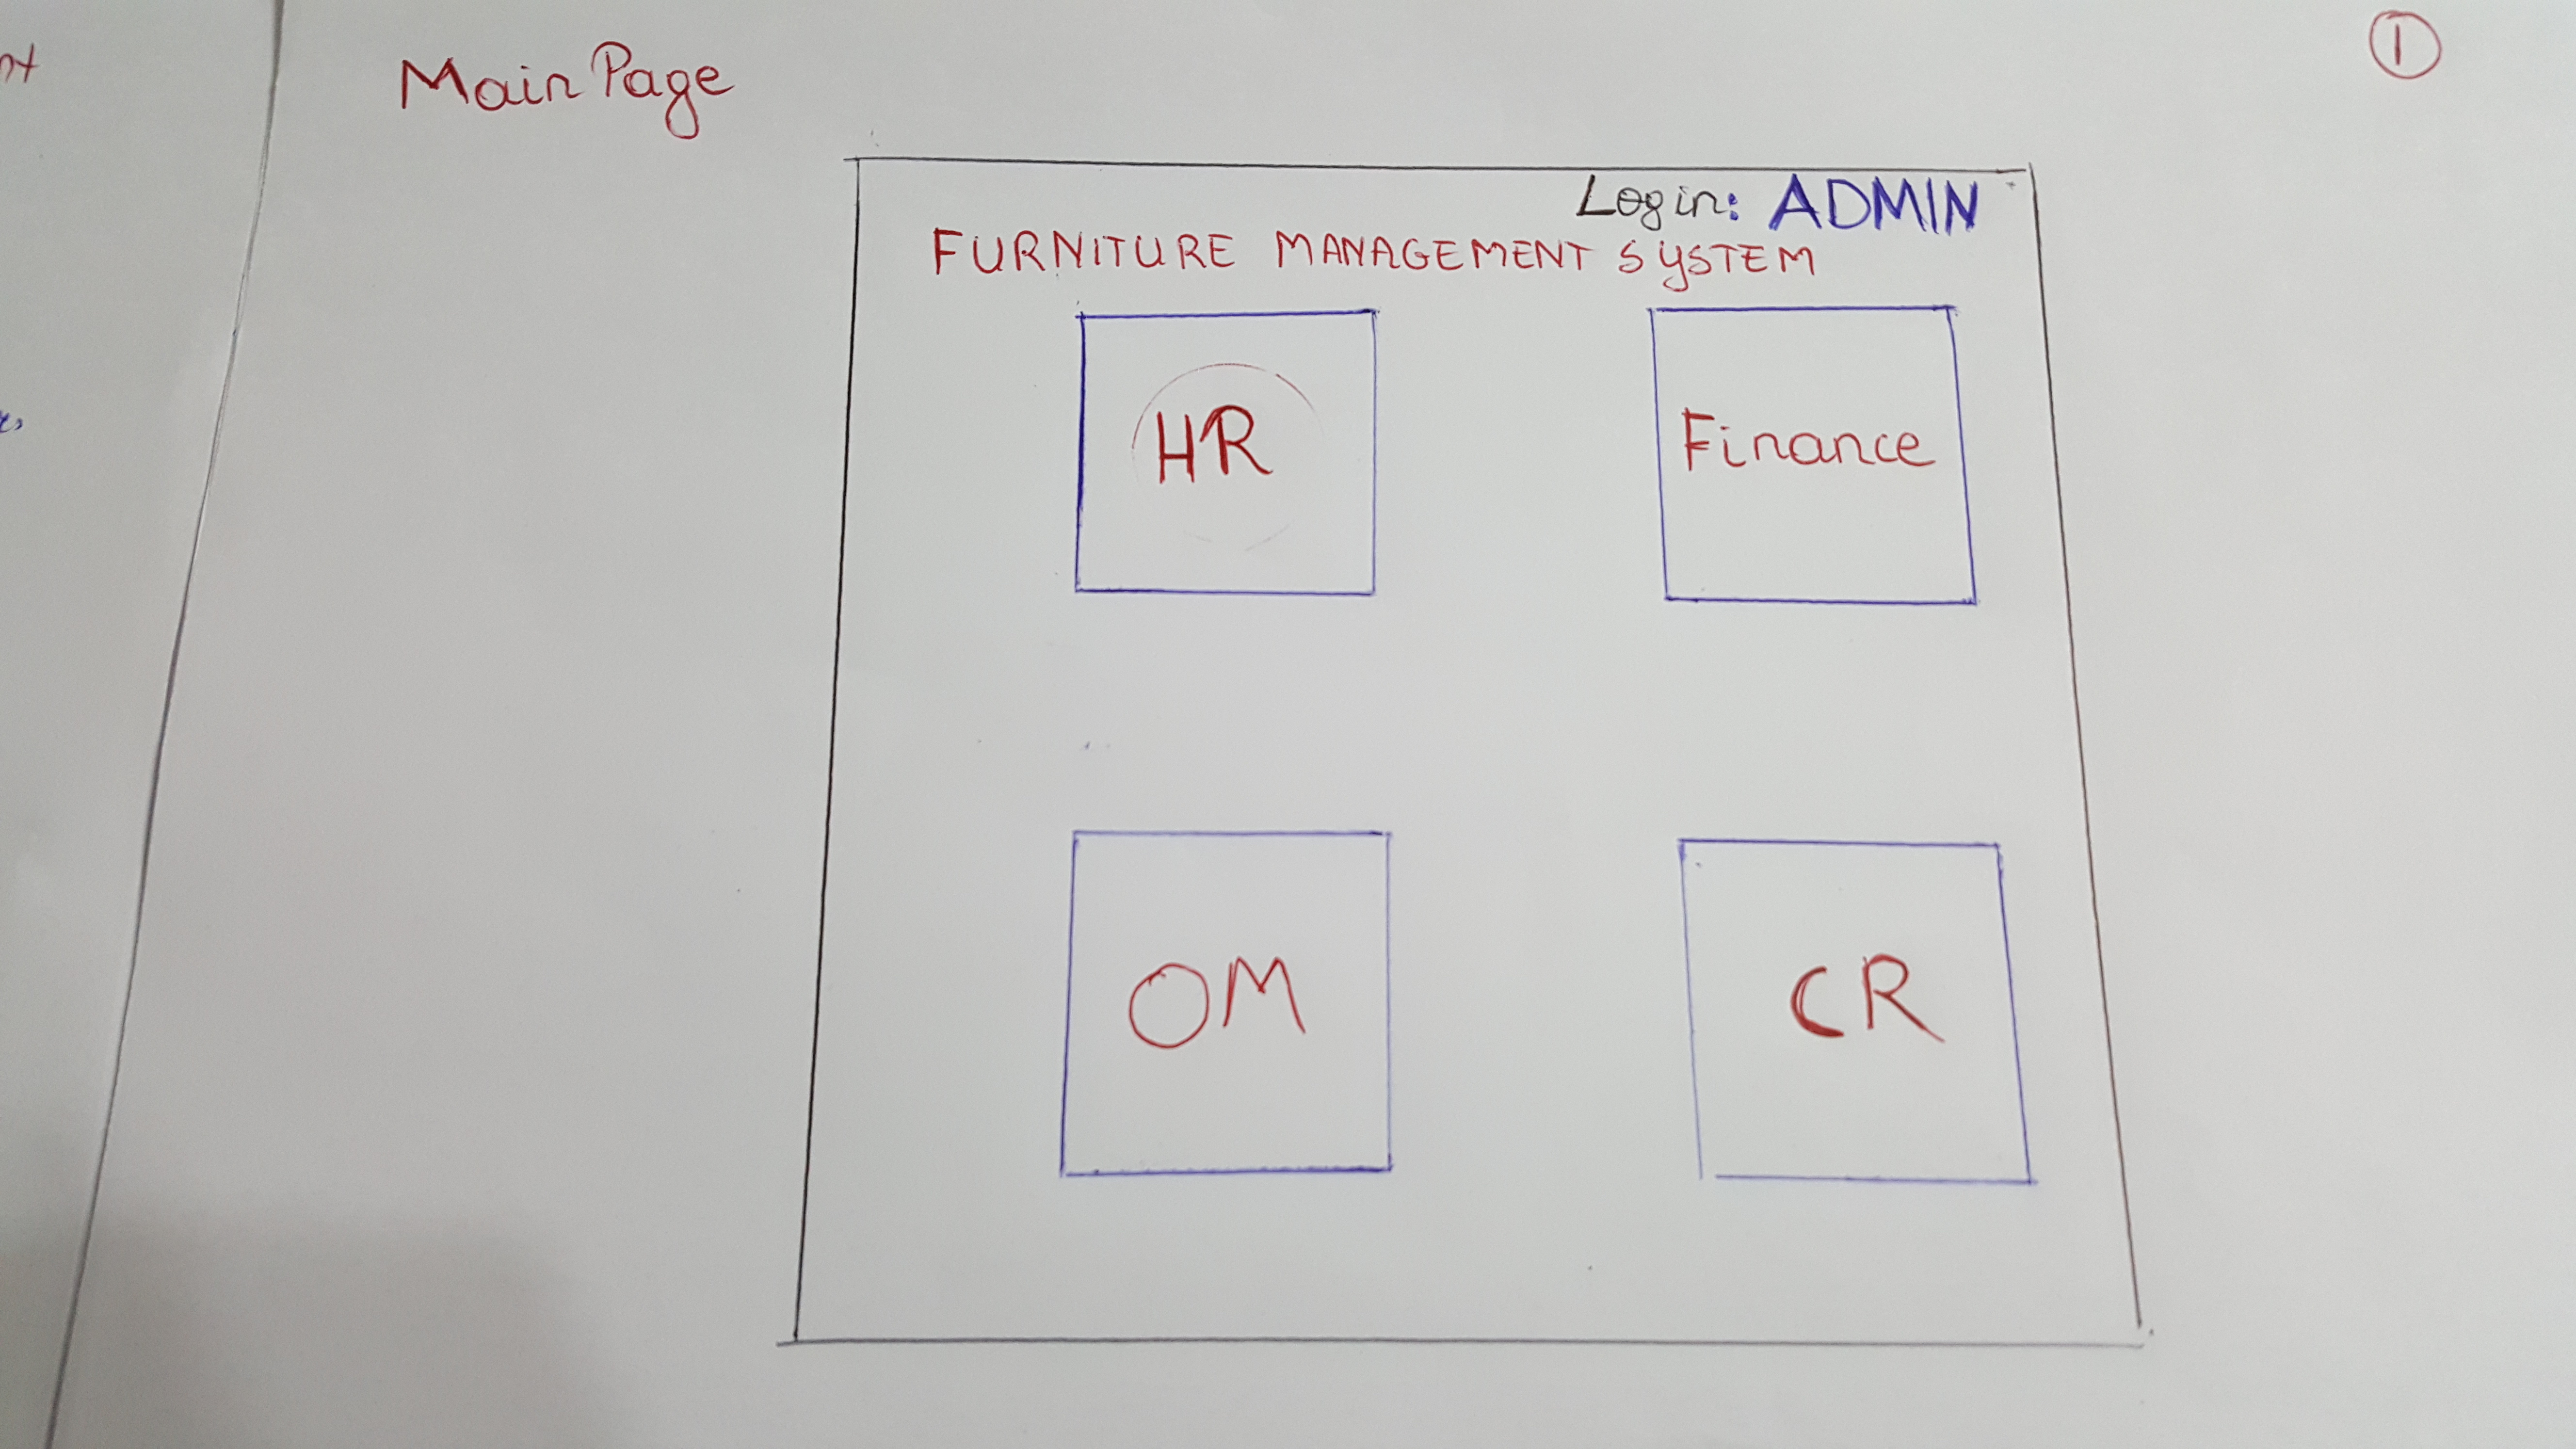 Main Page
1
Login: ADMIN
FURNITURE MANAGEMENT SYSTEM
HR
Finance
OM
CR